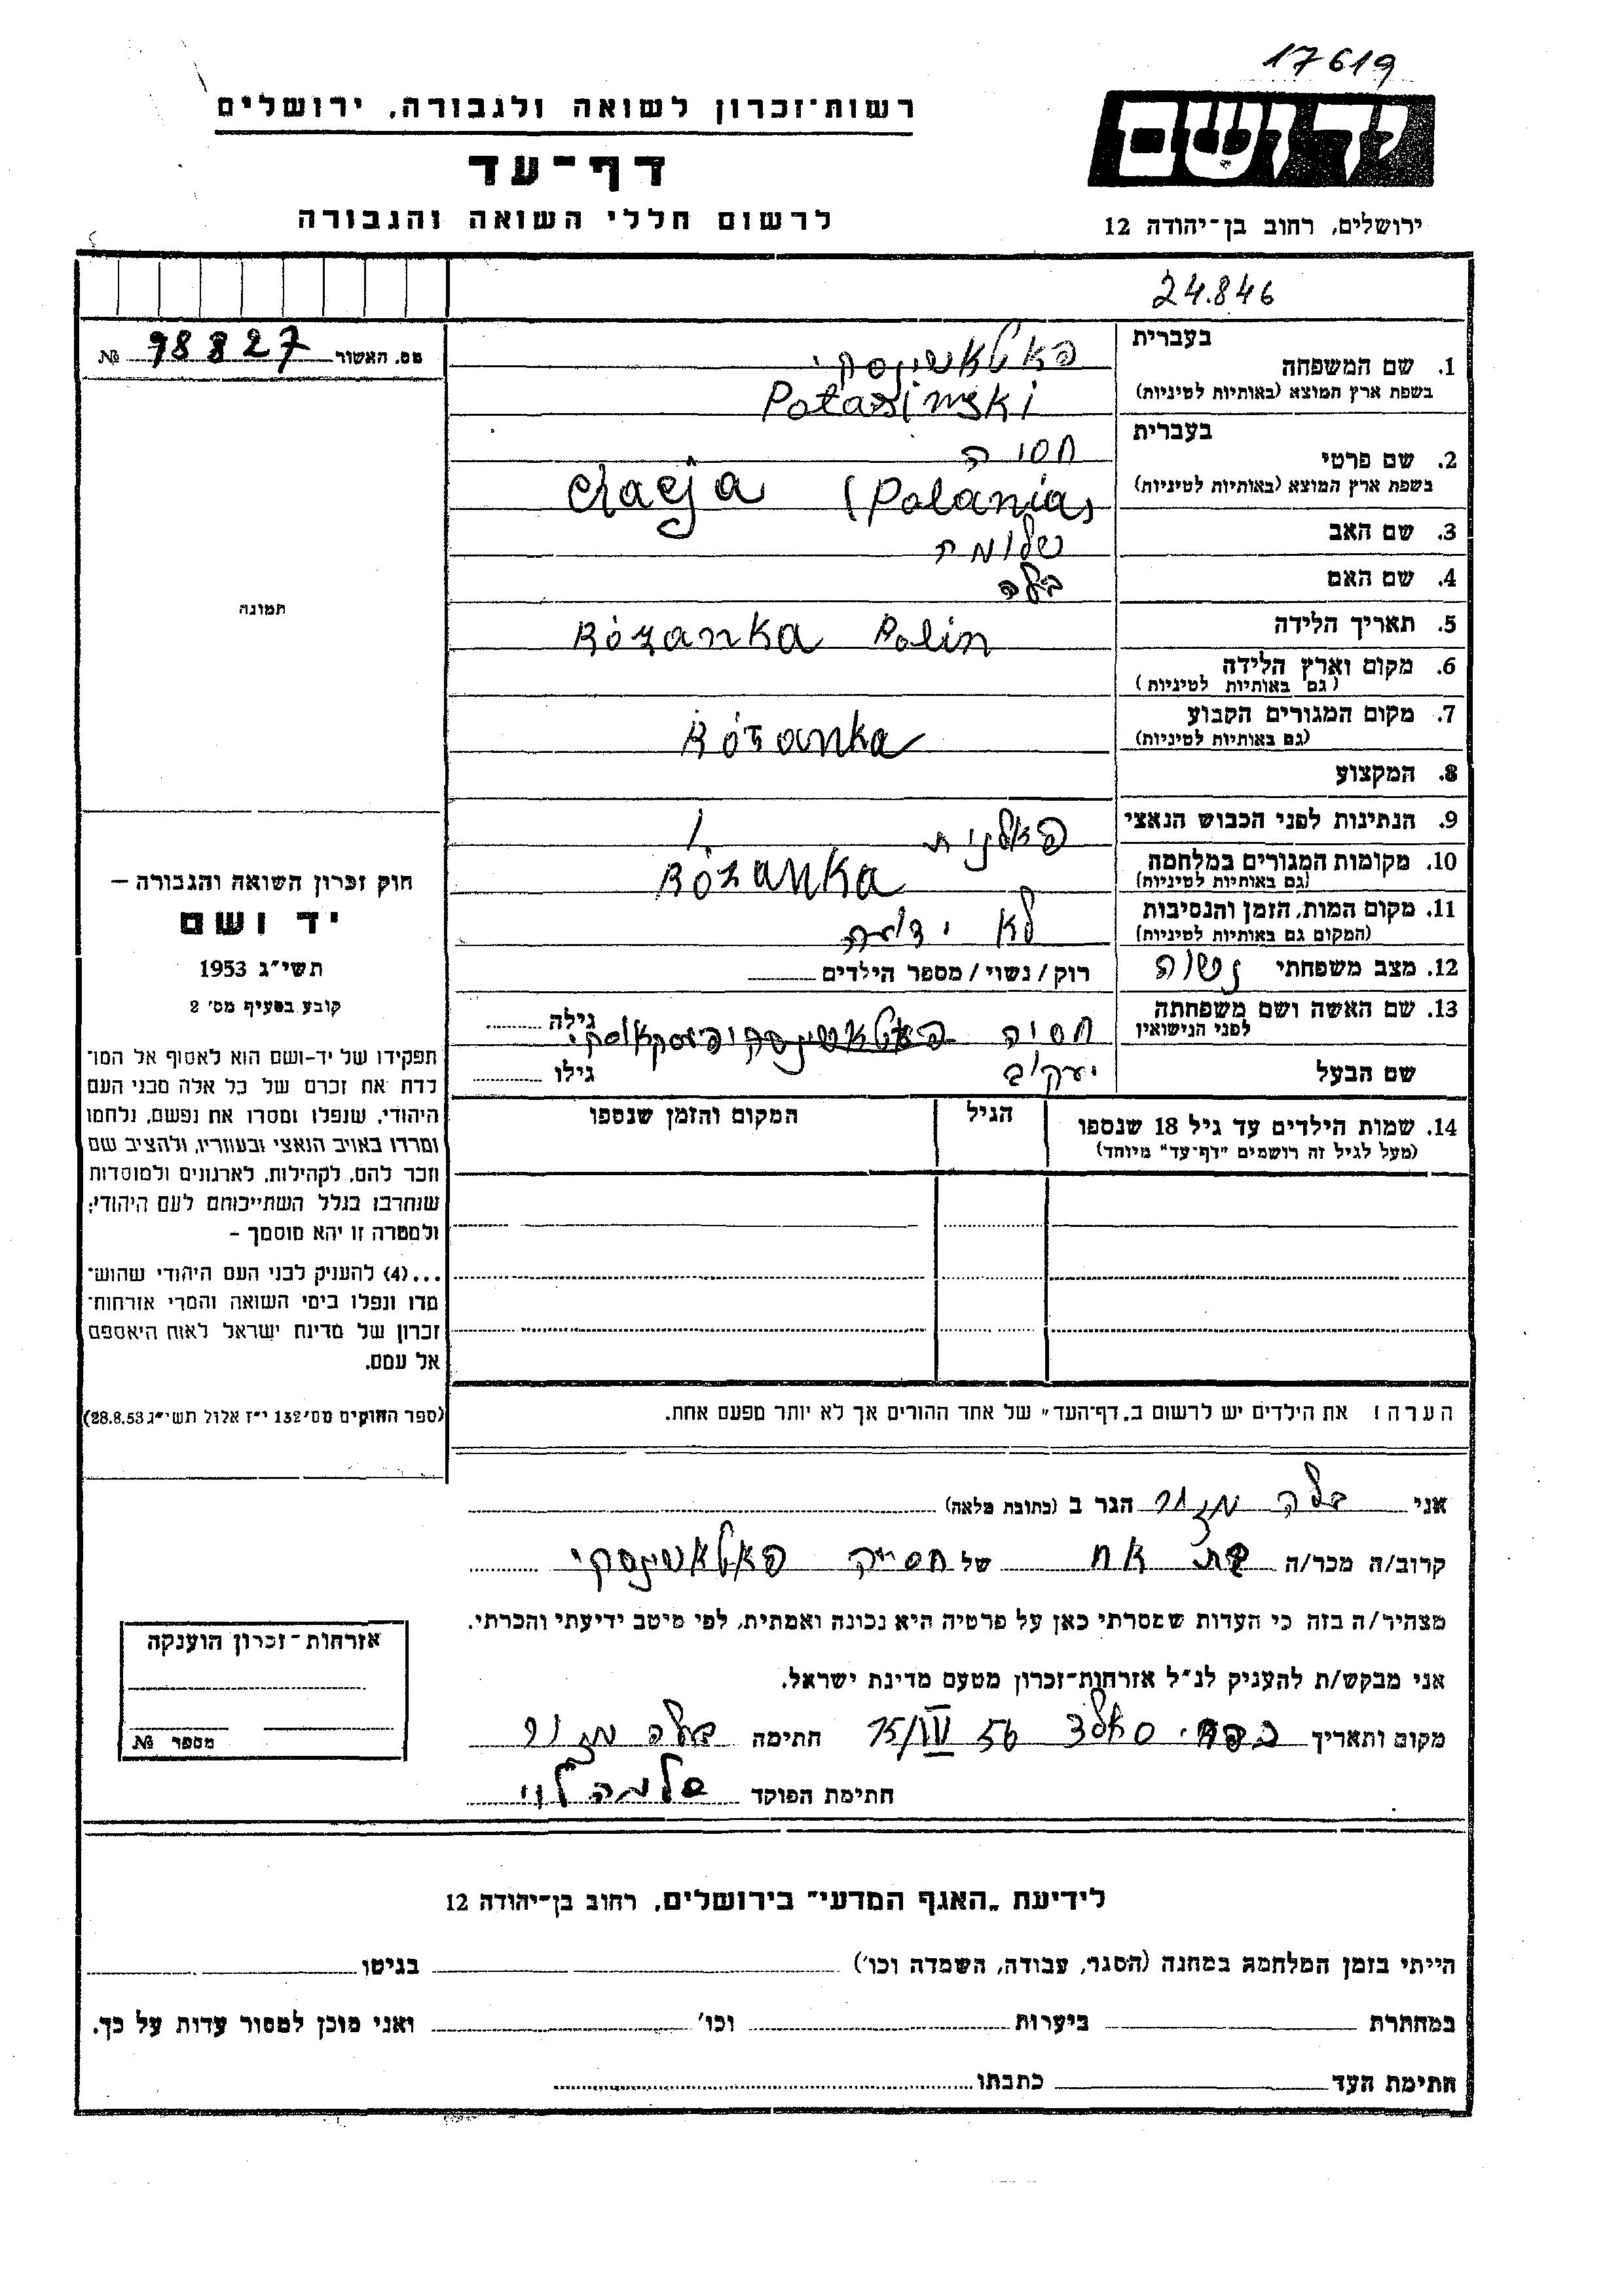 17619
רשות־זכרון לשואה ולגבורה, ירושלים
יד ושם
דף־עד
לרשום חללי השואה והגבורה
ירושלים, רחוב בן־יהודה 12
24.846
מס. האשור 98827 №
תמונה
1. שם המשפחה
בעברית פאטאשינסקי
בשפת ארץ המוצא (באותיות לטיניות) Potasinski
2. שם פרטי
בעברית חסיה
בשפת ארץ המוצא (באותיות לטיניות) (Polania)
3. שם האב
4. שם האם בלה
5. תאריך הלידה Różanka Polin
6. מקום וארץ הלידה
(גם באותיות לטיניות)
7. מקום המגורים הקבוע Różanka
(גם באותיות לטיניות)
8. המקצוע
9. הנתינות לפני הכבוש הנאצי פאלנית
10. מקומות המגורים במלחמה Różanka
(גם באותיות לטיניות)
11. מקום המות, הזמן והנסיבות לא ידוע
(המקום גם באותיות לטיניות)
12. מצב משפחתי נשוה רוק/נשוי/מספר הילדים
13. שם האשה ושם משפחתה
לפני הנישואין חסיה גילה
שם הבעל יעקוב גילו
14. שמות הילדים עד גיל 18 שנספו הגיל המקום והזמן שנספו
(מעל לגיל זה רושמים "דף־עד" מיוחד)
הערה: את הילדים יש לרשום ב„דף־העד" של אחד ההורים אך לא יותר מפעם אחת.
חוק זכרון השואה והגבורה –
יד ושם
תשי"ג 1953
קובע בסעיף מס' 2
תפקידו של יד־ושם הוא לאסוף אל המו־
לדת את זכרם של כל אלה מבני העם
היהודי, שנפלו ומסרו את נפשם, נלחמו
ומרדו באויב הנאצי ובעוזריו, ולהציב שם
וזכר להם, לקהילות, לארגונים ולמוסדות
שנחרבו בגלל השתייכותם לעם היהודי;
ולמטרה זו יהא מוסמך –
...(4) להעניק לבני העם היהודי שהוש־
מדו ונפלו בימי השואה והמרי אזרחות־
זכרון של מדינת ישראל לאות היאספם
אל עמם.
(ספר החוקים מס' 132 י"ז אלול תשי"ג 28.8.53)
אני בלה הגר ב (כתובת מלאה)
קרוב/ה מכר/ה בת אח של חסיה פאטאשינסקי
מצהיר/ה בזה כי העדות שמסרתי כאן על פרטיה היא נכונה ואמתית, לפי מיטב ידיעתי והכרתי.
אני מבקש/ת להעניק לנ"ל אזרחות־זכרון מטעם מדינת ישראל.
מקום ותאריך 56 חתימה בלה
חתימת הפוקד לוי
אזרחות־זכרון הוענקה
מספר №
לידיעת „האגף המדעי" בירושלים, רחוב בן־יהודה 12
הייתי בזמן המלחמה במחנה (הסגר, עבודה, השמדה וכו') בגיטו
במחתרת ביערות וכו' ואני מוכן למסור עדות על כך.
חתימת העד כתבתו